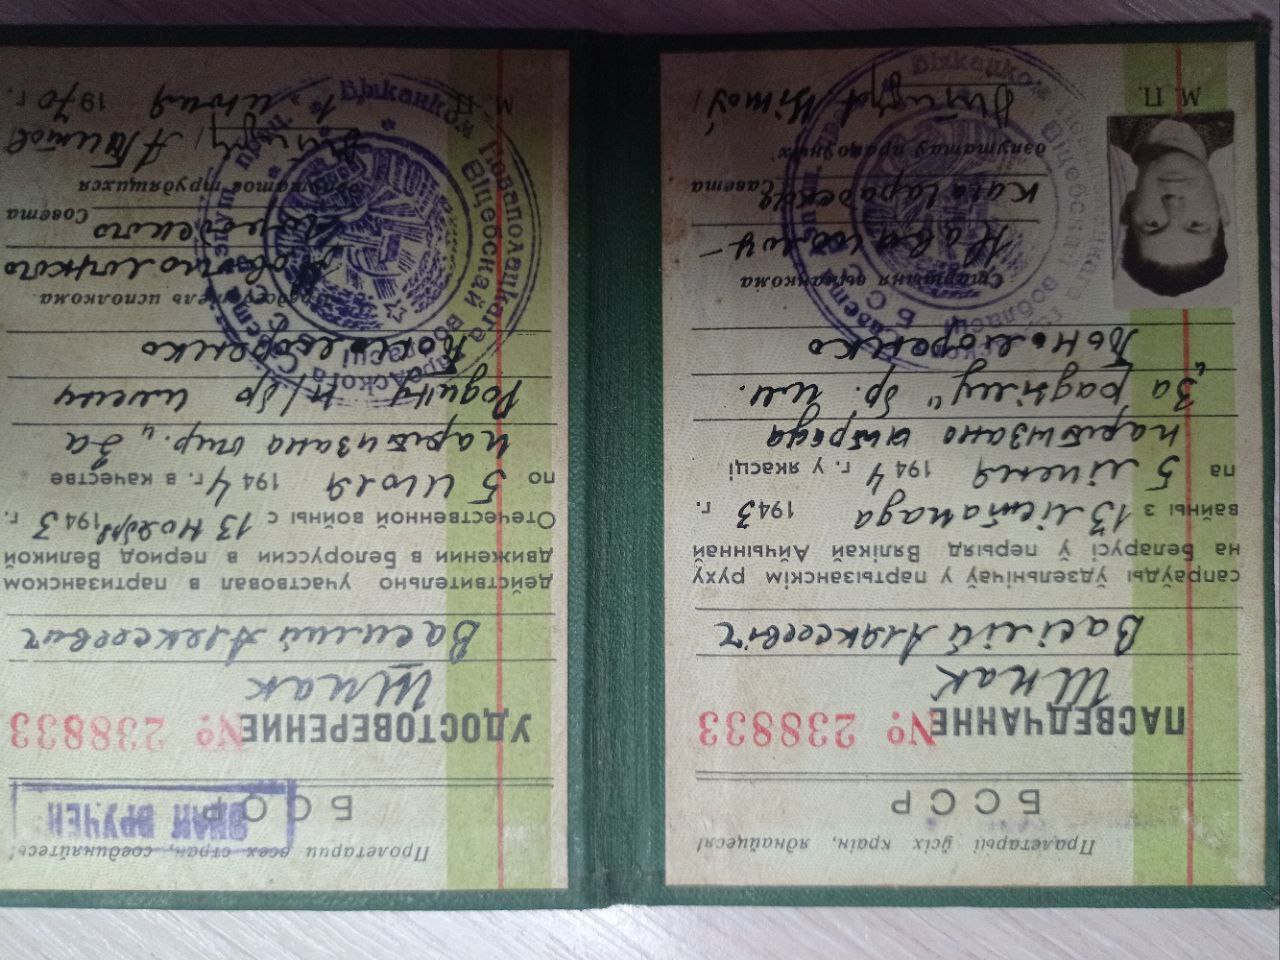 Пралетарыі ўсіх краін, яднайцеся!
БССР
ПАСВЕДЧАННЕ № 238833
Шпак
Васілій Аляксеевіч
сапраўды ўдзельнічаў у партызанскім руху
на Беларусі ў перыяд Вялікай Айчыннай
вайны з 13 лістапада 1943 г.
па 5 ліпеня 1944 г. у якасці
партызана атрада
"За радзіму" бр. им.
Старшыня выканкома
Савета
дэпутатаў працоўных
М. П.
Пролетарии всех стран, соединяйтесь!
БССР
ЗНАК ВРУЧЕН
УДОСТОВЕРЕНИЕ № 238833
Шпак
Василий Алексеевич
действительно участвовал в партизанском
движении в Белоруссии в период Великой
Отечественной войны с 13 ноября 1943 г.
по 5 июля 1944 г. в качестве
партизана отр. "За
Родину" п/бр имени
Председатель исполкома
Новополоцкого
городского Совета
депутатов трудящихся
М. П. 1 июня 1970 г.